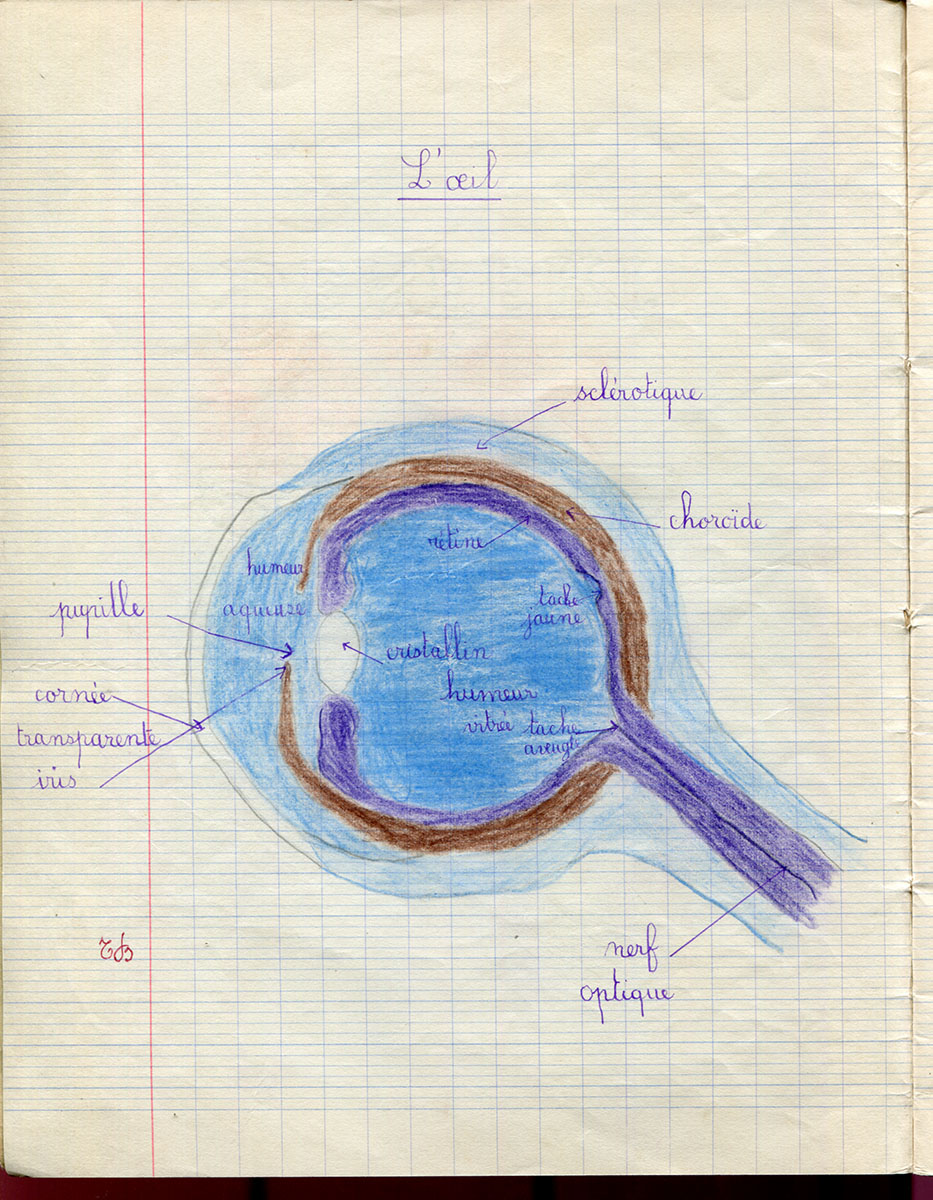 L'œil
sclérotique
choroïde
rétine
humeur
aqueuse
tache
jaune
pupille
cristallin
humeur
vitrée
tache
aveugle
cornée
transparente
iris
nerf
optique